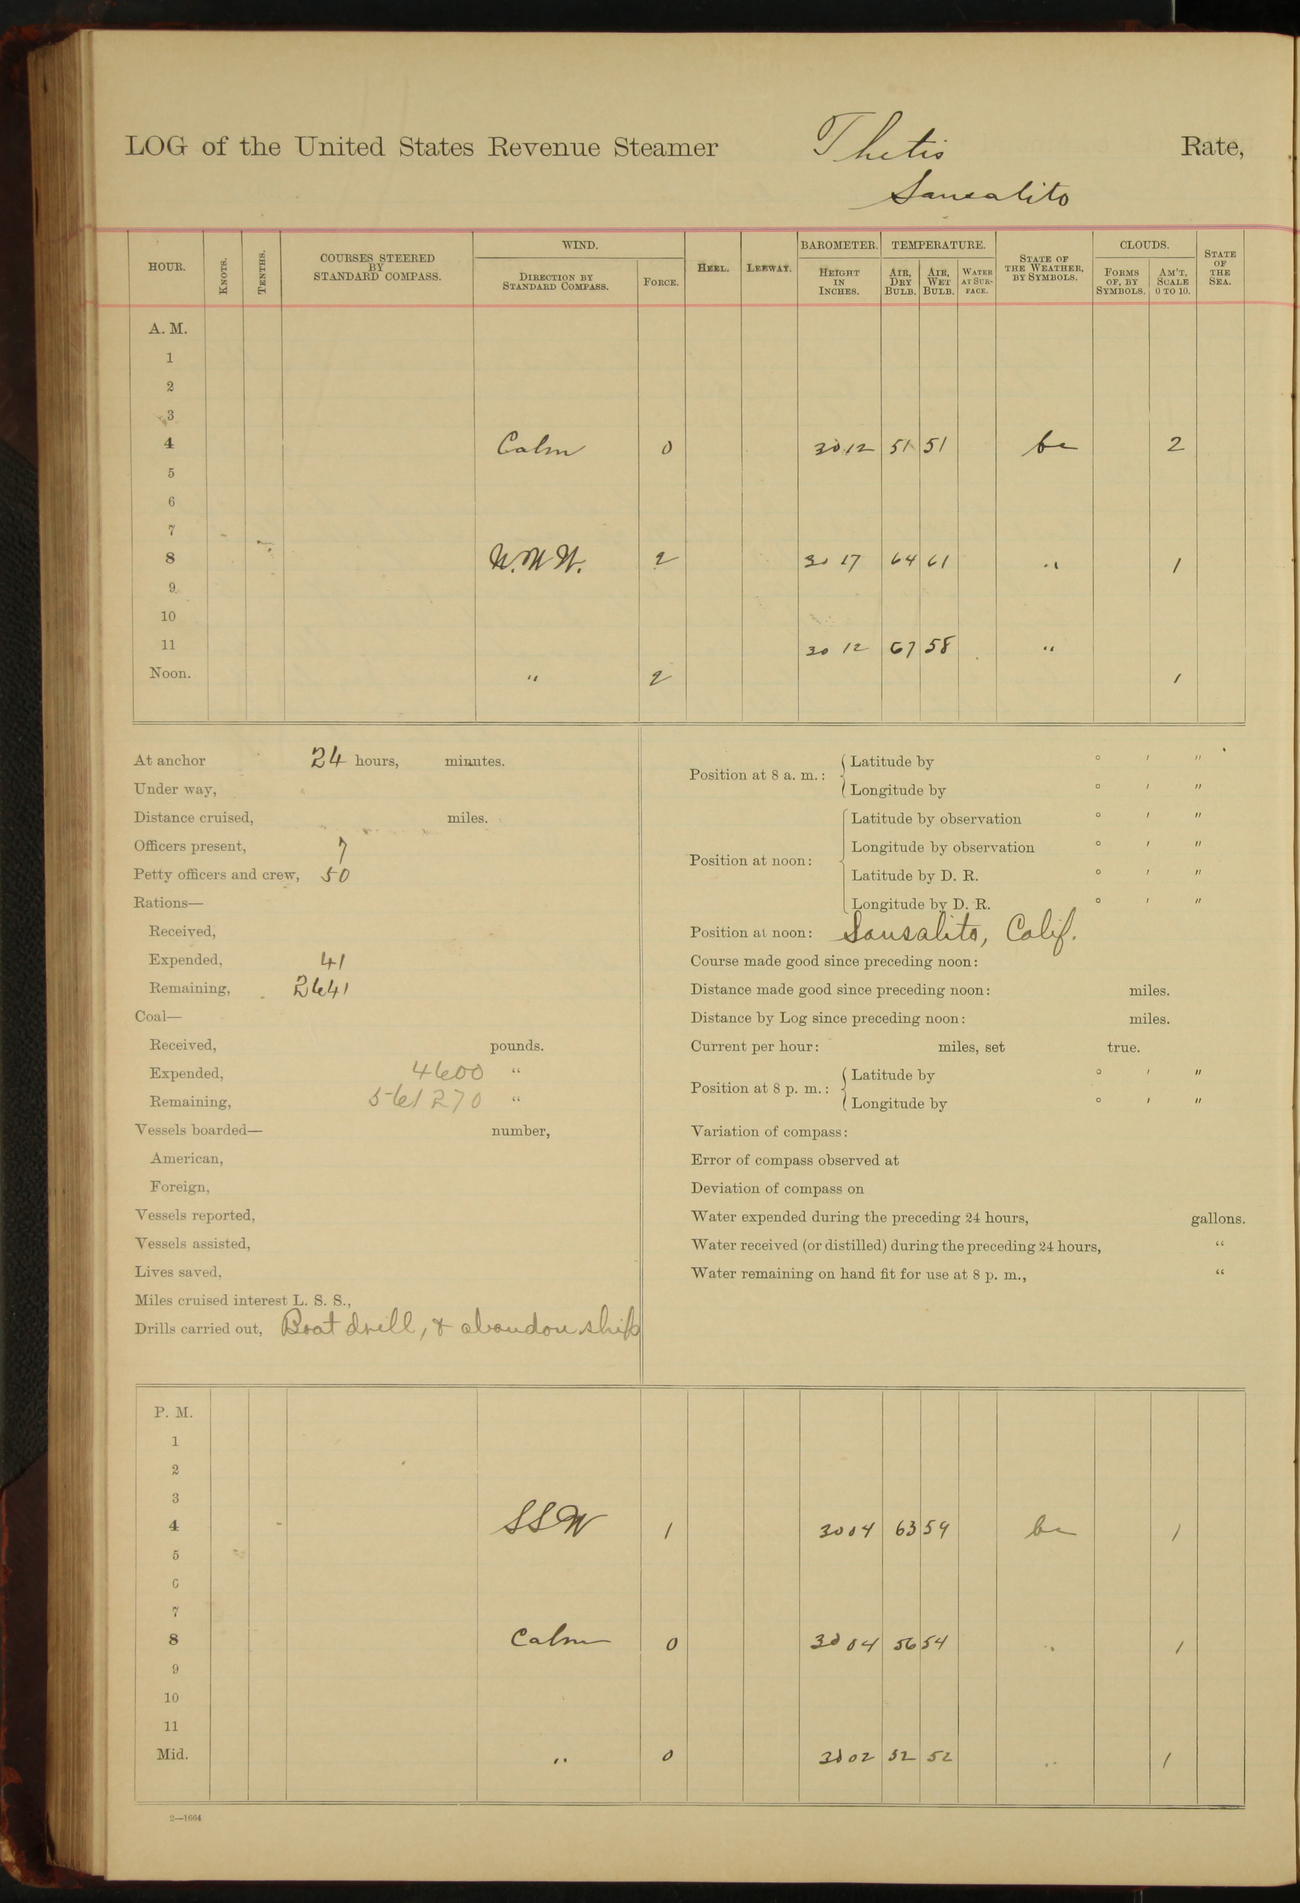 LOG of the United States Revenue Steamer Thetis Rate,
Sausalito
HOUR. KNOTS. TENTHS. COURSES STEERED BY STANDARD COMPASS. WIND. DIRECTION BY STANDARD COMPASS. FORCE. HEEL. LEEWAY. BAROMETER. HEIGHT IN INCHES. TEMPERATURE. AIR, DRY BULB. AIR, WET BULB. WATER AT SURFACE. STATE OF THE WEATHER, BY SYMBOLS. CLOUDS. FORMS OF, BY SYMBOLS. AM'T, SCALE 0 TO 10. STATE OF THE SEA.
A. M.
1
2
3
4 Calm 0 30 12 51 51 bc 2
5
6
7
8 2 30 17 64 61 " 1
9
10
11 30 12 67 58 "
Noon. " 2 1
At anchor 24 hours, minutes.
Under way,
Distance cruised, miles.
Officers present, 7
Petty officers and crew, 50
Rations—
Received,
Expended, 41
Remaining, 2641
Coal—
Received, pounds.
Expended, 4600 "
Remaining, 561270 "
Vessels boarded— number,
American,
Foreign,
Vessels reported,
Vessels assisted,
Lives saved,
Miles cruised interest L. S. S.,
Drills carried out, Boat drill, & abandon ship
Position at 8 a. m.: Latitude by ° ′ ″
Longitude by ° ′ ″
Position at noon: Latitude by observation ° ′ ″
Longitude by observation ° ′ ″
Latitude by D. R. ° ′ ″
Longitude by D. R. ° ′ ″
Position at noon: Sausalito, Calif.
Course made good since preceding noon:
Distance made good since preceding noon: miles.
Distance by Log since preceding noon: miles.
Current per hour: miles, set true.
Position at 8 p. m.: Latitude by ° ′ ″
Longitude by ° ′ ″
Variation of compass:
Error of compass observed at
Deviation of compass on
Water expended during the preceding 24 hours, gallons.
Water received (or distilled) during the preceding 24 hours, "
Water remaining on hand fit for use at 8 p. m., "
P. M.
1
2
3
4 SSW 1 30 04 63 59 bc 1
5
6
7
8 Calm 0 30 04 56 54 " 1
9
10
11
Mid. " 0 30 02 52 52 " 1
2—1664